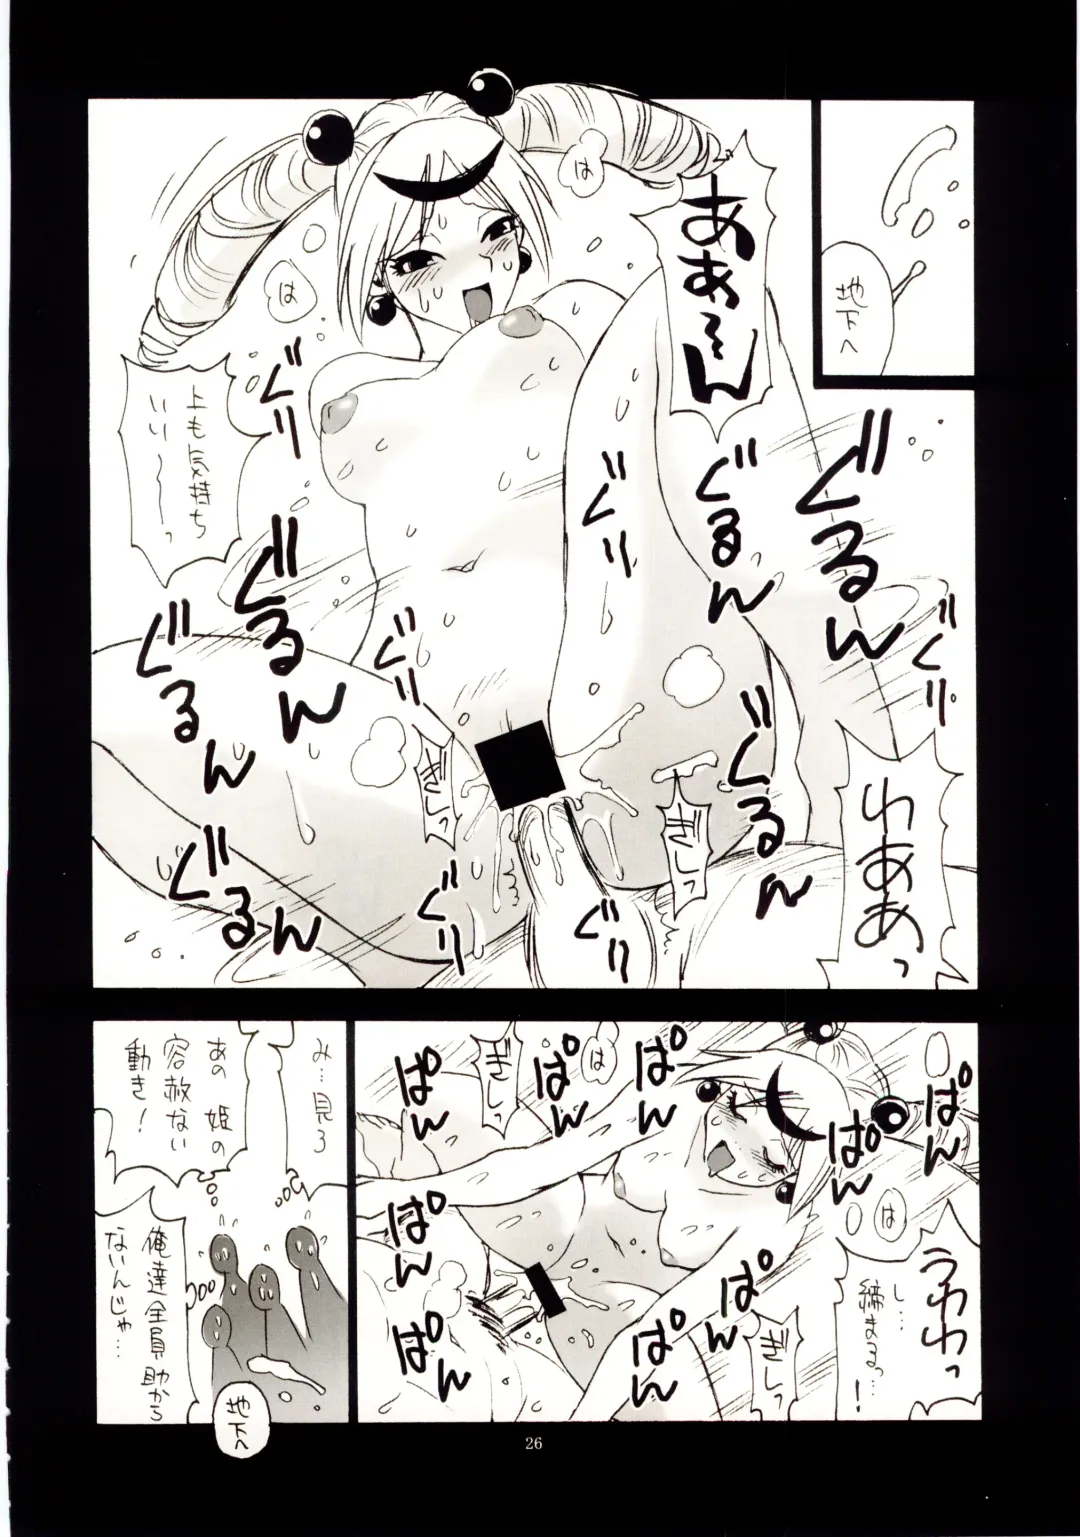 地下へ
ああ〜ん
は
は
上も気持ち
いい〜っ
ぐり
ぐり
ぐるん
ぐるん
ぐり
ぐるん
ぐるん
ぐり
ぐるん
ぐるん
ぐり
ぐり
ぎしっ
ぎしっ
わああっ
ぱん
ぱん
ぱん
ぱん
ぱん
ぱん
ぱん
ぱん
ぱん
ぎしっ
ぎしっ
は
は
うわわっ
し…
締まるっ…!
み…見ろ
あの姫の
容赦ない
動き!
俺達全員助から
ないんじゃ…
地下へ
26